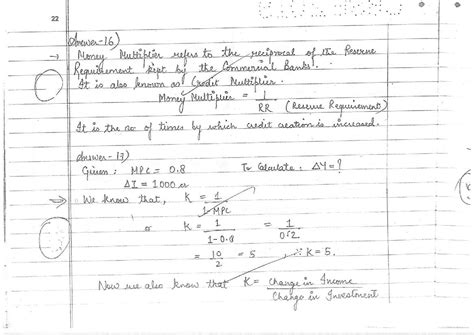 22
Answer-16)
→ Money Multiplier refers to the reciprocal of the Reserve
Requirement kept by the Commercial Banks.
It is also known as Credit Multiplier.
Money Multiplier = 1
RR (Reserve Requirement)
It is the no of times by which credit creation is increased.
Answer-13)
Given: MPC = 0.8 To Calculate: ΔY = ?
ΔI = 1000
→ We know that, K = 1
1-MPC
or K = 1 = 1
1-0.8 0.2
= 10 = 5 ∴ K = 5.
2
Now we also know that K = Change in Income
Change in Investment